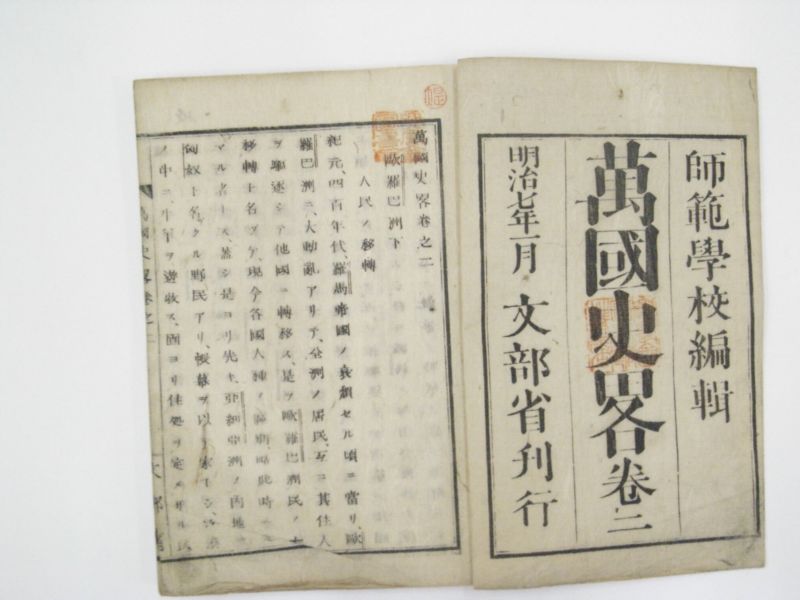 師範學校編輯
萬國史畧卷二
明治七年一月 文部省刊行
萬國史畧卷之二
歐羅巴洲下
人民ノ移轉
紀元、四百年代、羅馬帝國ノ衰頽セル頃ニ當リ、歐
羅巴洲ニ、大動亂アリテ、全洲ノ居民、互ニ其住人
ヲ驅逐シテ他國ニ轉移ス、是ヲ歐羅巴洲民ノ大
移轉ト名ク、現今各國人種ノ
マル者トス、蓋シ是ヨリ先キ、亞細亞洲ノ內地ニ
匈奴ト名クル野民アリ、帳幕ヲ以テ家トシ
ノ中ニ、牛羊ヲ遊牧ス、固ヨリ住処ヲ定メザル民
萬國史畧卷之二